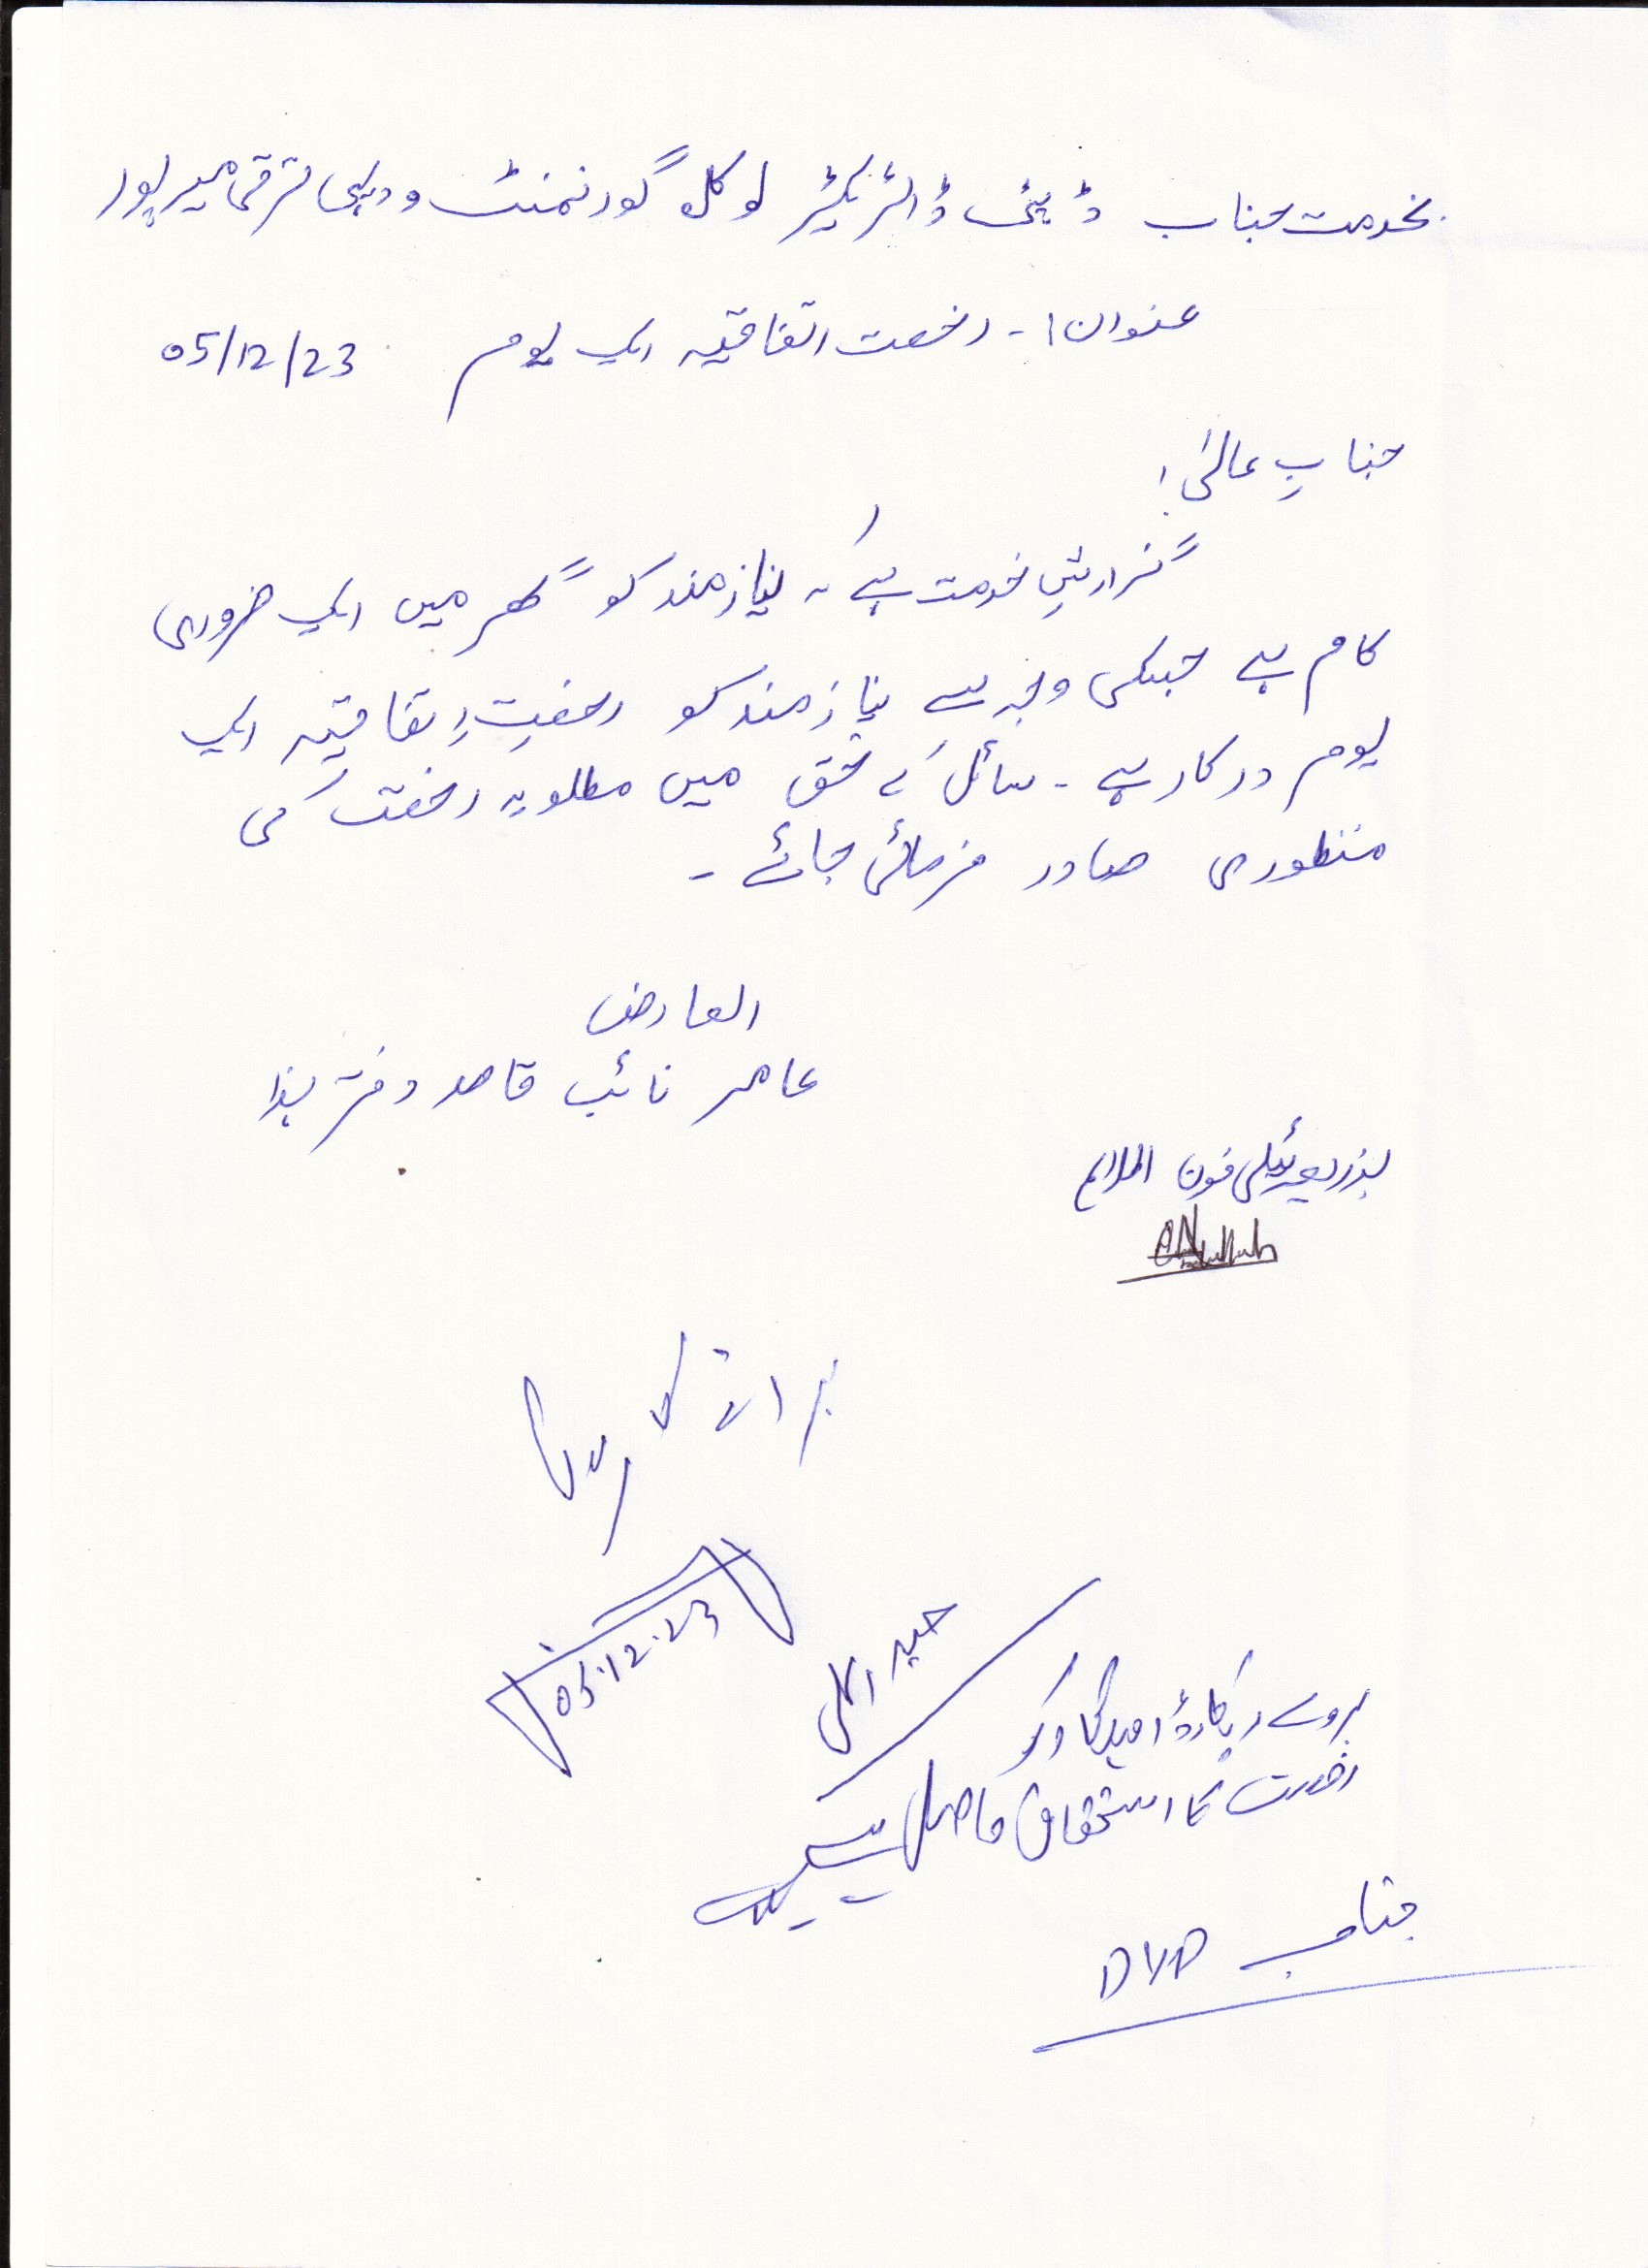 بخدمت جناب ڈپٹی ڈائریکٹر لوکل گورنمنٹ و دیہی ترقی میرپور
عنوان :- رخصت اتفاقیہ ایک یوم 05/12/23
جنابِ عالیٰ!
گزارشِ خدمت ہے کہ نیازمند کو گھر میں ایک ضروری
کام ہے جسکی وجہ سے نیازمند کو رخصتِ اتفاقیہ ایک
یوم درکار ہے ۔ سائل کے حق میں مطلوبہ رخصت کی
منظوری صادر فرمائی جائے ۔
العارض
عامر نائب قاصد دفتر ہذا
بذریعہ ٹیلی فون
05.12.23
بروئے ریکارڈ
رخصت کا استحقاق حاصل
جناب